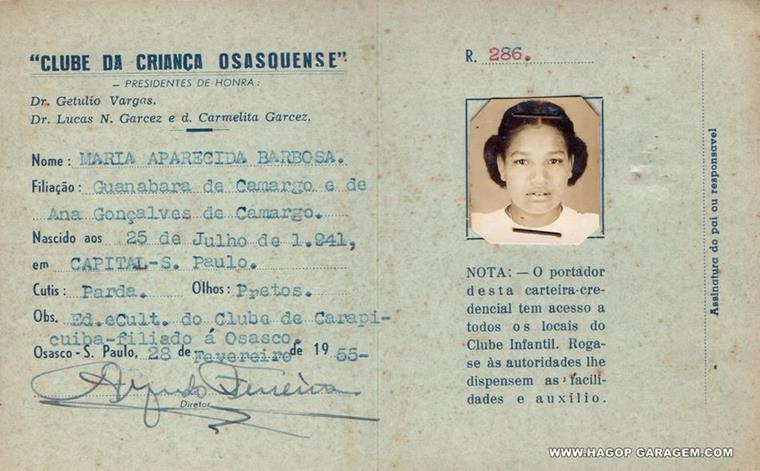 "CLUBE DA CRIANÇA OSASQUENSE"
— PRESIDENTES DE HONRA:
Dr. Getulio Vargas.
Dr. Lucas N. Garcez e d. Carmelita Garcez.
Nome: MARIA APARECIDA BARBOSA.
Filiação: Guanabara de Camargo e de
Ana Gonçalves de Camargo.
Nascido aos 25 de Julho de 1.941,
em CAPITAL-S. Paulo.
Cutis: Parda. Olhos: Pretos.
Obs. Ed.eCult. do Clube de Carapi-
cuiba-filiado á Osasco.
Osasco - S. Paulo, 28 de Fevereiro de 1955-
Diretor
R. 286.
NOTA: — O portador
desta carteira-cre-
dencial tem acesso a
todos os locais do
Clube Infantil. Roga-
se às autoridades lhe
dispensem as facili-
dades e auxilio.
Assinatura do pai ou responsavel
WWW.HAGOP GARAGEM.COM